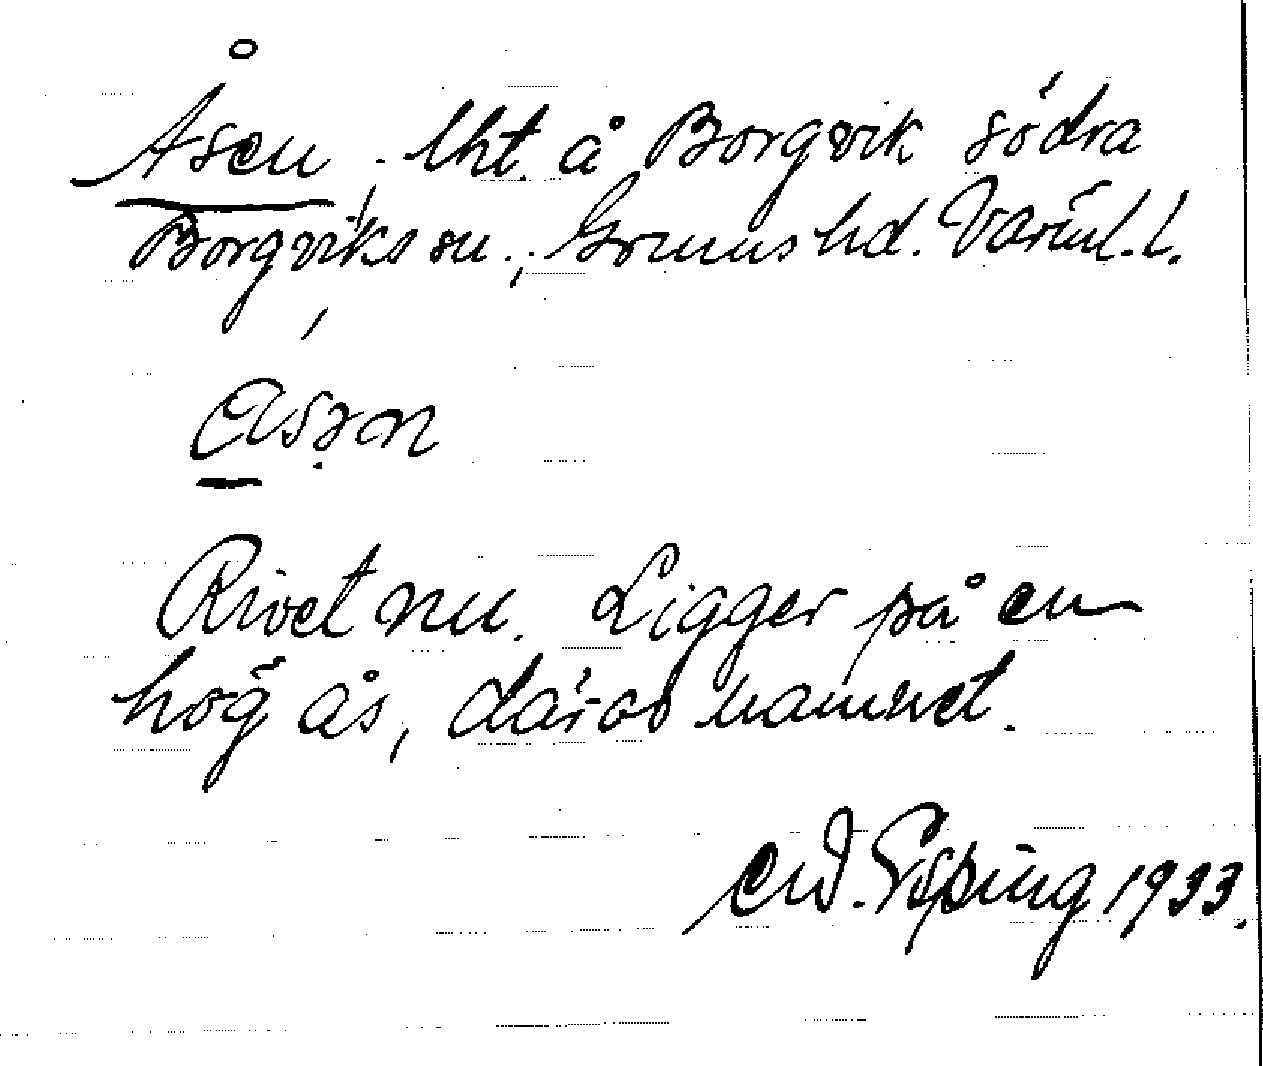 Åsen, lht. å Borgvik södra
Borgviks sn., Grums hd. Värml. l.
Rivet nu. Ligger på en
hög ås, därav namnet.
Esping 1933.